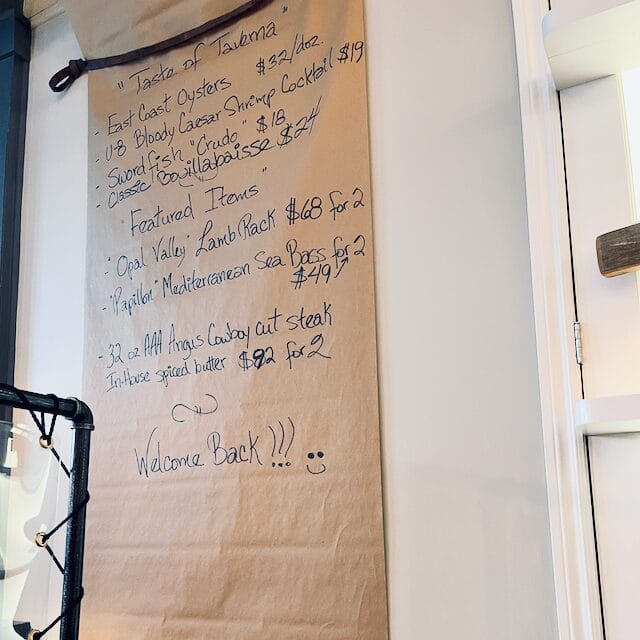 "Taste of Taverna"
- East Coast Oysters $32/doz.
- U-8 Bloody Caesar Shrimp Cocktail $19
- Swordfish "Crudo" $18
- Classic Bouillabaisse $24
"Featured Items"
- "Opal Valley" Lamb Rack $68 for 2
- "Papillon" Mediterranean Sea Bass for 2
$49
- 32 oz AAA Angus Cowboy cut steak
In-House spiced butter $92 for 2
Welcome Back!!!